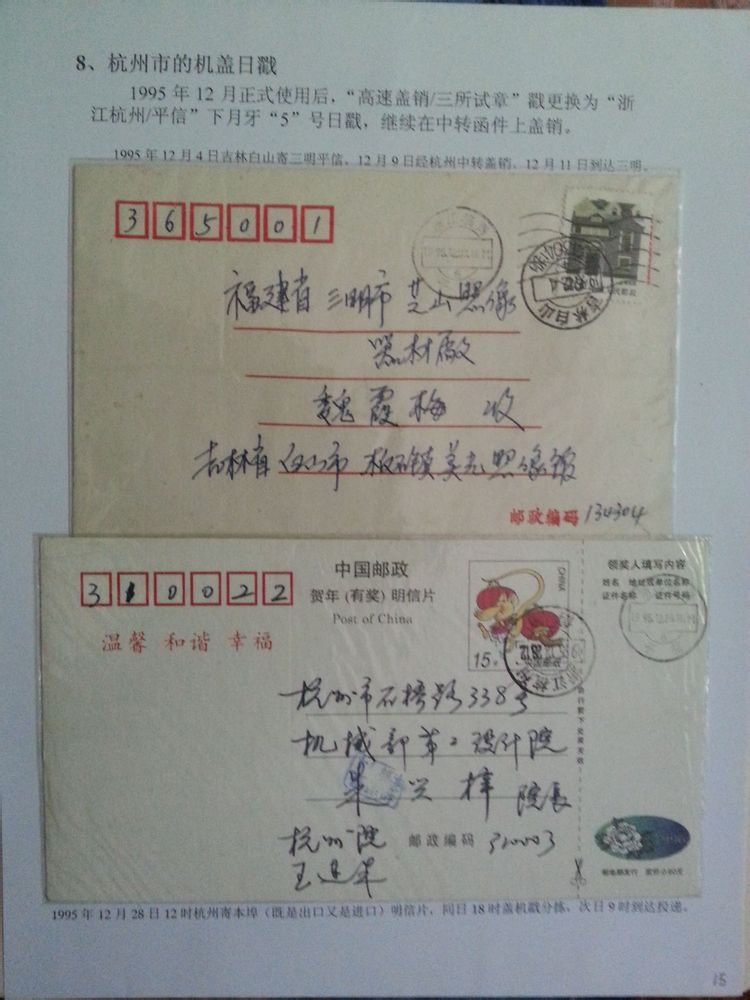 8、杭州市的机盖日戳
1995 年 12 月正式使用后，“高速盖销/三所试章”戳更换为“浙
江杭州/平信”下月牙“5”号日戳，继续在中转函件上盖销。
1995 年 12 月 4 日吉林白山寄三明平信，12 月 9 日经杭州中转盖销，12 月 11 日到达三明。
365001
福建省 三明市 芝山照像
器材厰
魏霞梅 收
吉林省 白山市 板石镇 美光照像馆
邮政编码 134304
吉林白山
中国邮政
贺年（有奖）明信片
Post of China
310022
温馨 和谐 幸福
CHINA
15分
领奖人填写内容
姓名 地址或单位名称
证件名称 证件号码
杭州市石桥路338号
机械部第二设计院
朱兴梓 院长
杭州院 邮政编码 310003
1995 年 12 月 28 日 12 时杭州寄本埠（既是出口又是进口）明信片，同日 18 时盖机戳分拣，次日 9 时到达投递。
15